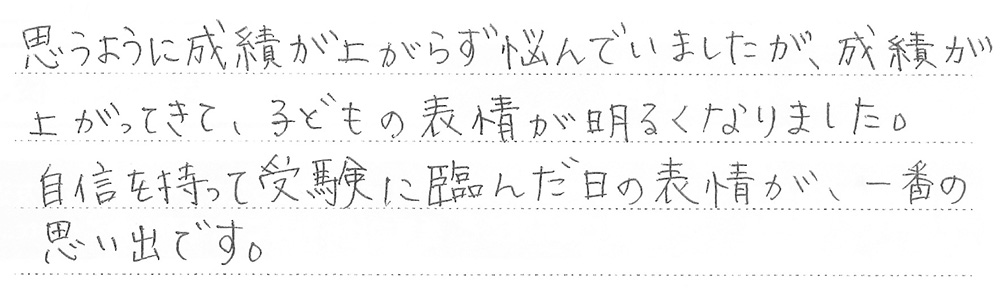 思うように成績が上がらず悩んでいましたが、成績が
上がってきて、子どもの表情が明るくなりました。
自信を持って受験に臨んだ日の表情が、一番の
思い出です。